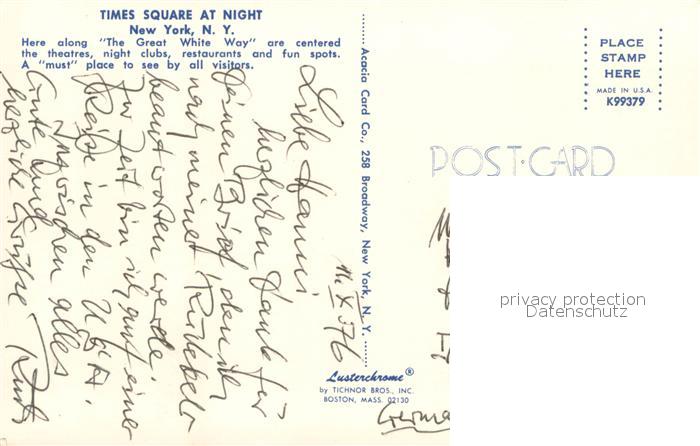 TIMES SQUARE AT NIGHT
New York, N. Y.
Here along "The Great White Way" are centered
the theatres, night clubs, restaurants and fun spots.
A "must" place to see by all visitors.
Liebe Hanni
herzlichen Dank für
Deinen Brief den ich
nach meiner Rückkehr
beantworten werde.
Zur Zeit bin ich auf einer
Reise in den USA.
Inzwischen alles
Gute und
herzliche Grüsse
Acacia Card Co., 258 Broadway, New York, N. Y.
Lusterchrome®
by TICHNOR BROS., INC.
BOSTON, MASS. 02130
PLACE
STAMP
HERE
MADE IN U.S.A.
K99379
POST-CARD
privacy protection
Datenschutz